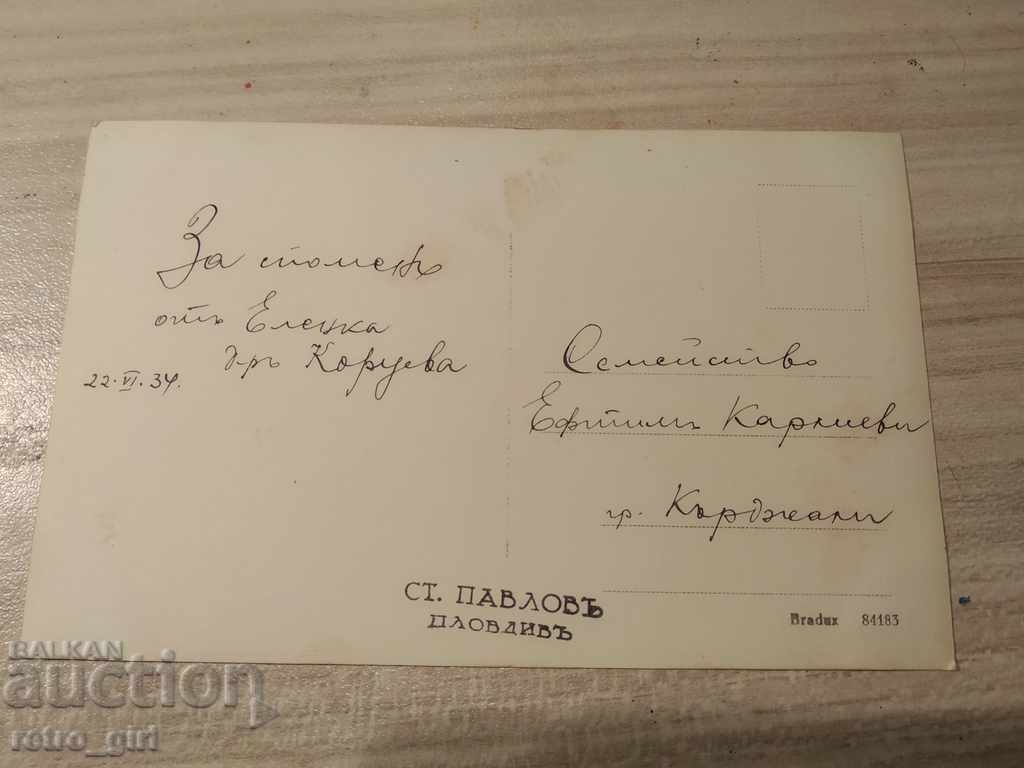 За споменъ
отъ Еленка
д-ръ Корцева
22.VI.34.
Семейство
Ефтимъ Каркиеви
гр. Кърджали
СТ. ПАВЛОВЪ
ПЛОВДИВЪ
Bradux 84183
BALKAN
auction
retro_girl